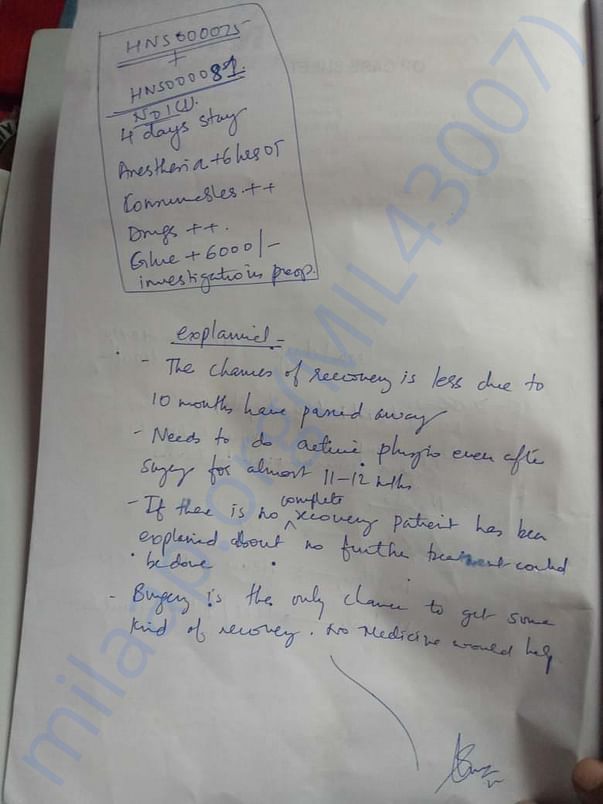 HNS000025
+
HNS000081
ND1(1).
4 days stay
Anesthesia + 6 hrs OT
Consumables ++
Drugs ++.
Glue + 6000/-
investigations preop.
explained -
- The chances of recovery is less due to
10 months have passed away
- Needs to do active physio even after
surgey for almost 11-12 mths
- If there is no complete recovery patient has been
explained about no further treatment could
be done
- Surgery is the only chance to get some
kind of recovery. No Medicine would help
milaap.org(MIL43007)